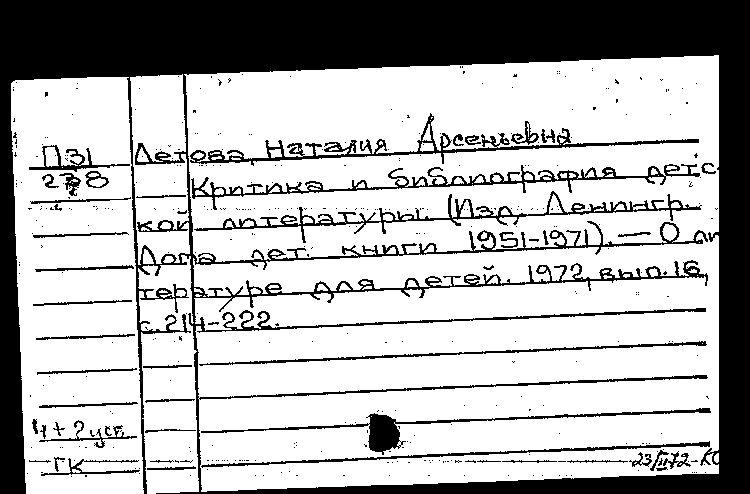 П31 Летова, Наталия Арсеньевна
278
Критика и библиография детс-
кой литературы. (Изд. Ленингр.
Дома дет. книги 1951-1971). — О ли
тературе для детей. 1972, вып. 16,
с. 214-222.
ГК